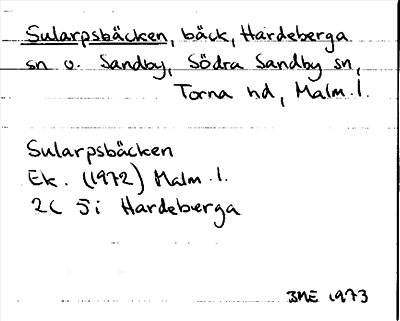 Sularpsbäcken, bäck, Hardeberga
sn o. Sandby, Södra Sandby sn,
Torna hd, Malm. l.
Sularpsbäcken
Ek. (1972) Malm. l.
2C 5i Hardeberga
BNE 1973